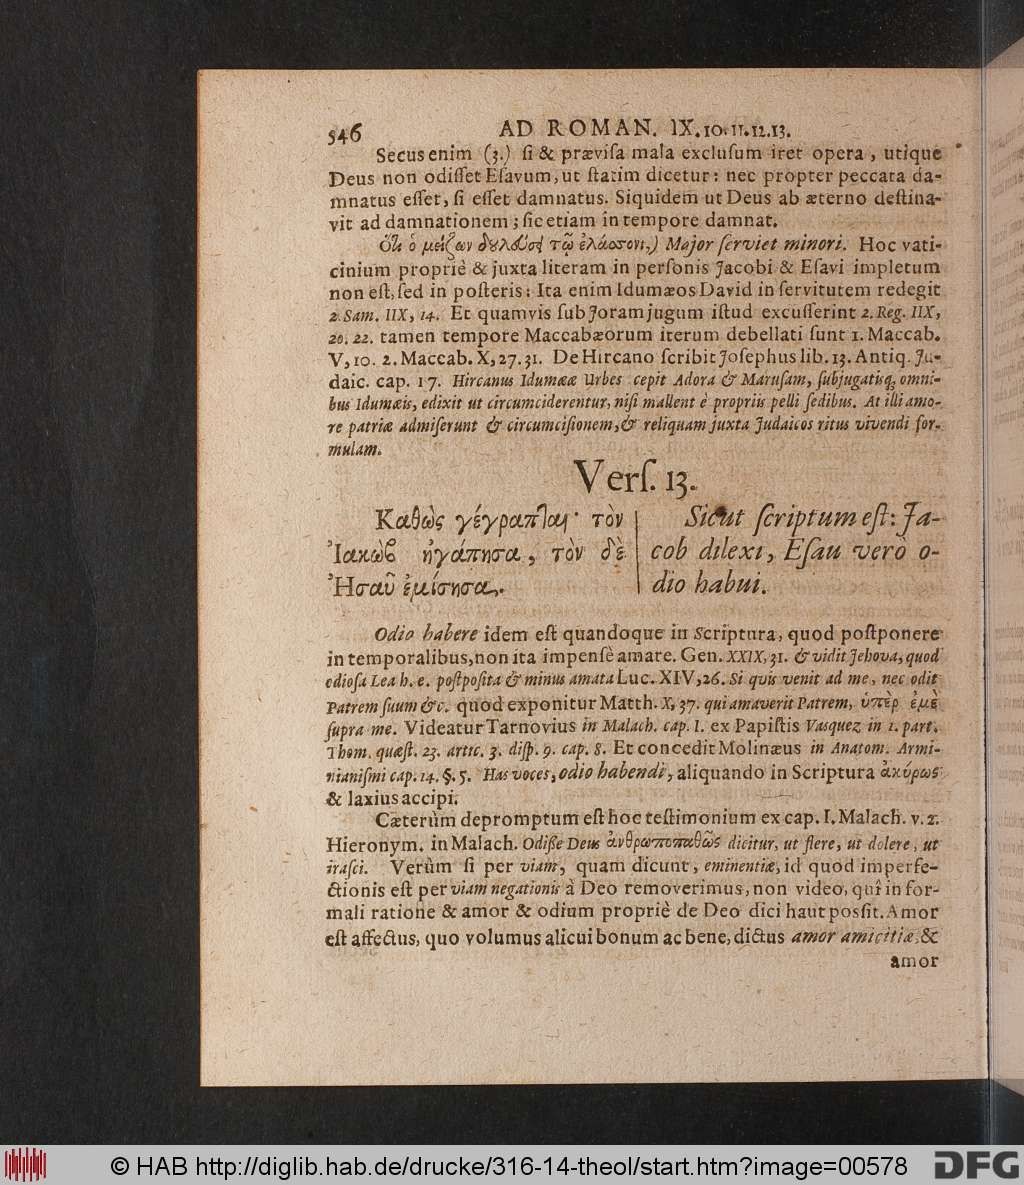 546 AD ROMAN. IX. 10. 11. 12. 13.
Secus enim (3.) ſi & præviſa mala excluſum iret opera, utique
Deus non odiſſet Eſavum, ut ſtatim dicetur: nec propter peccata da-
mnatus eſſet, ſi eſſet damnatus. Siquidem ut Deus ab æterno deſtina-
vit ad damnationem; ſic etiam in tempore damnat.
Ὅτι ὁ μείζων δουλεύσει τῷ ἐλάσσονι,) Major ſerviet minori. Hoc vati-
cinium propriè & juxta literam in perſonis Jacobi & Eſavi impletum
non eſt, ſed in poſteris: Ita enim Idumæos David in ſervitutem redegit
2. Sam. IIX, 14. Et quamvis ſub Joram jugum iſtud excuſſerint 2. Reg. IIX,
20. 22. tamen tempore Maccabæorum iterum debellati ſunt 1. Maccab.
V, 10. 2. Maccab. X, 27. 31. De Hircano ſcribit Joſephus lib. 13. Antiq. Ju-
daic. cap. 17. Hircanus Idumææ Urbes cepit Adora & Maruſam, ſubjugatisq; omni-
bus Idumæis, edixit ut circumciderentur, niſi mallent è propriis pelli ſedibus. At illi amo-
re patriæ admiſerunt & circumciſionem, & reliquam juxta Judaicos ritus vivendi for-
mulam.
Verſ. 13.
Καθὼς γέγραπται· τὸν
Ἰακὼβ ἠγάπησα, τὸν δὲ
Ἠσαῦ ἐμίσησα.
Sicut ſcriptum eſt: Ja-
cob dilexi, Eſau verò o-
dio habui.
Odio habere idem eſt quandoque in Scriptura, quod poſtponere
in temporalibus, non ita impensè amare. Gen. XXIX, 31. & vidit Jehova, quod
edioſa Lea h. e. poſtpoſita & minus amata Luc. XIV, 26. Si quis venit ad me, nec odit
Patrem ſuum &c. quod exponitur Matth. X, 37. qui amaverit Patrem, ὑπὲρ ἐμὲ
ſupra me. Videatur Tarnovius in Malach. cap. I. ex Papiſtis Vasquez in 1. part.
Thom. quæſt. 23. artic. 3. diſp. 9. cap. 8. Et concedit Molinæus in Anatom. Armi-
nianiſmi cap. 14. §. 5. Has voces, odio habendi, aliquando in Scriptura ἀκύρως
& laxius accipi.
Cæterùm depromptum eſt hoc teſtimonium ex cap. I. Malach. v. 2.
Hieronym. in Malach. Odiſſe Deus ἀνθρωποπαθῶς dicitur, ut flere, ut dolere, ut
iraſci. Verùm ſi per viam, quam dicunt, eminentiæ, id quod imperfe-
ctionis eſt per viam negationis à Deo removerimus, non video, quî in for-
mali ratione & amor & odium propriè de Deo dici haut poſſit. Amor
eſt affectus, quo volumus alicui bonum ac bene, dictus amor amicitiæ, &
amor
© HAB http://diglib.hab.de/drucke/316-14-theol/start.htm?image=00578
DFG